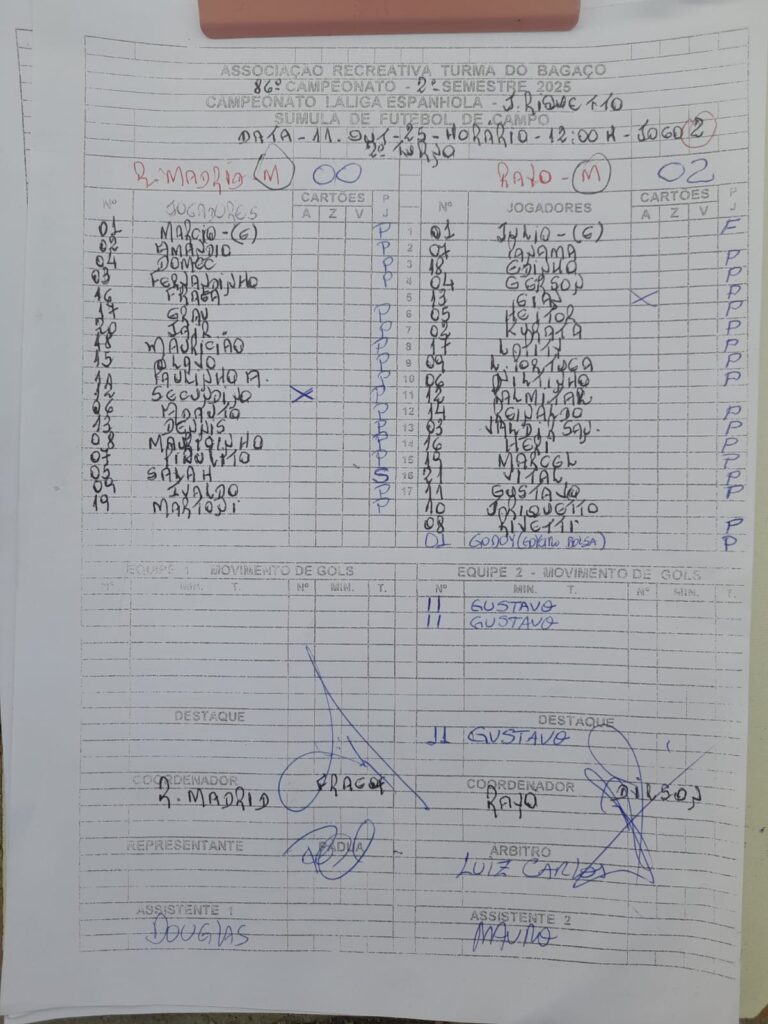 ASSOCIAÇÃO RECREATIVA TURMA DO BAGAÇO
86º CAMPEONATO - 2º SEMESTRE 2025
CAMPEONATO LALIGA ESPANHOLA - J.RIQUETTO
SUMULA DE FUTEBOL DE CAMPO
DATA - 11. OUT - 25 - HORÁRIO - 12:00 H - JOGO 2
2º TURNO
R. MADRID M 00 RAYO - M 02
Nº JOGADORES CARTÕES P Nº JOGADORES CARTÕES P
A Z V J A Z V J
01 MARCIO - (G) P 1 01 JULIO - (G) F
02 AMANDIO 2 07 PANAMA P
04 DOMEC P 3 18 EDINHO P
03 FERNANDINHO P 4 04 GERSON P
16 FRAGA 5 13 X P
17 GRAU P 6 05 HEITOR P
20 JAIR P 7 02 P
18 MAURICIÃO P 8 17 P
15 OLAVO P 9 09 P
14 PAULINHO A. P 10 06 DILTINHO P
12 SECUNDINO X P 11 12 PALMITAR
06 P 12 14 REINALDO P
13 DENNIS P 13 03 P
08 MAURICINHO P 14 16 P
07 PIRULITO P 15 19 MARCEL P
05 SALAH S 16 21 VITAL P
09 IVALDO P 17 11 GUSTAVO P
19 MARTONI P 10 JRIQUETTO
08 RIVETTI P
01 GODOY (GOLEIRO BOLSA) P
EQUIPE 1 MOVIMENTO DE GOLS EQUIPE 2 - MOVIMENTO DE GOLS
Nº MIN. T. Nº MIN. T. Nº MIN. T. Nº MIN. T.
11 GUSTAVO
11 GUSTAVO
DESTAQUE DESTAQUE
11 GUSTAVO
COORDENADOR COORDENADOR
R. MADRID RAYO DILSON
REPRESENTANTE PADUA ÁRBITRO
LUIZ CARLOS
ASSISTENTE 1 ASSISTENTE 2
DOUGLAS MAURO